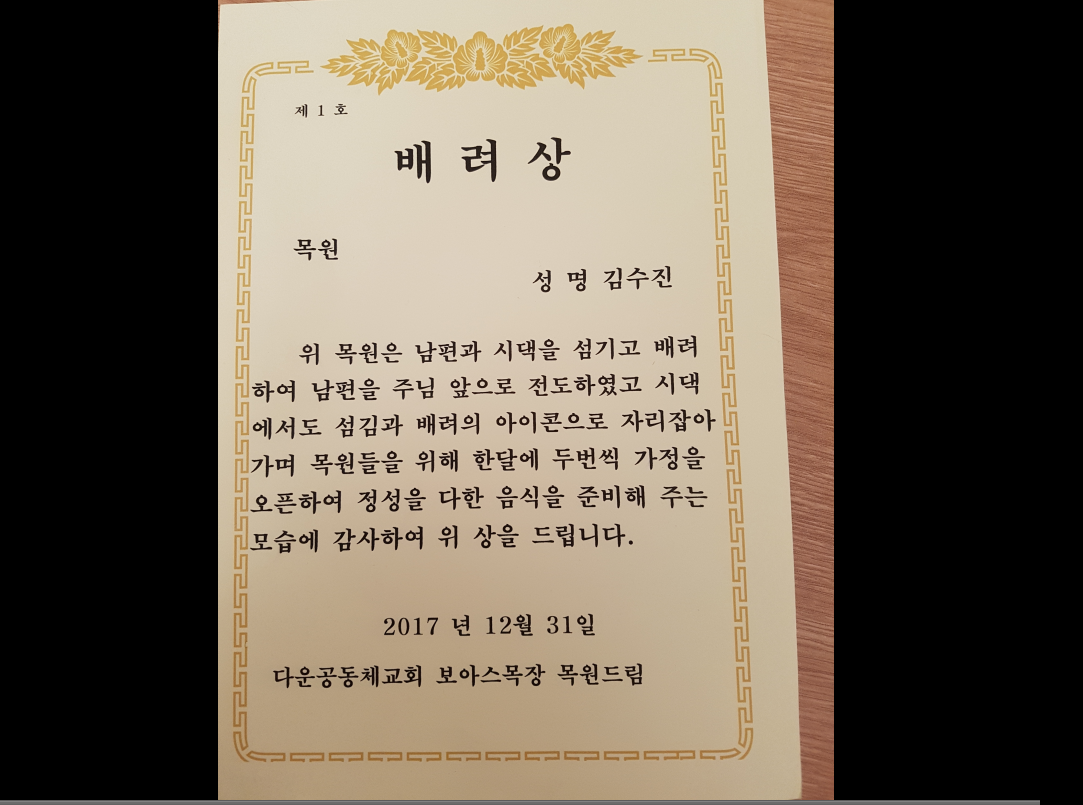 제 1 호
배 려 상
목원
성 명 김수진
위 목원은 남편과 시댁을 섬기고 배려
하여 남편을 주님 앞으로 전도하였고 시댁
에서도 섬김과 배려의 아이콘으로 자리잡아
가며 목원들을 위해 한달에 두번씩 가정을
오픈하여 정성을 다한 음식을 준비해 주는
모습에 감사하여 위 상을 드립니다.
2017 년 12월 31일
다운공동체교회 보아스목장 목원드림